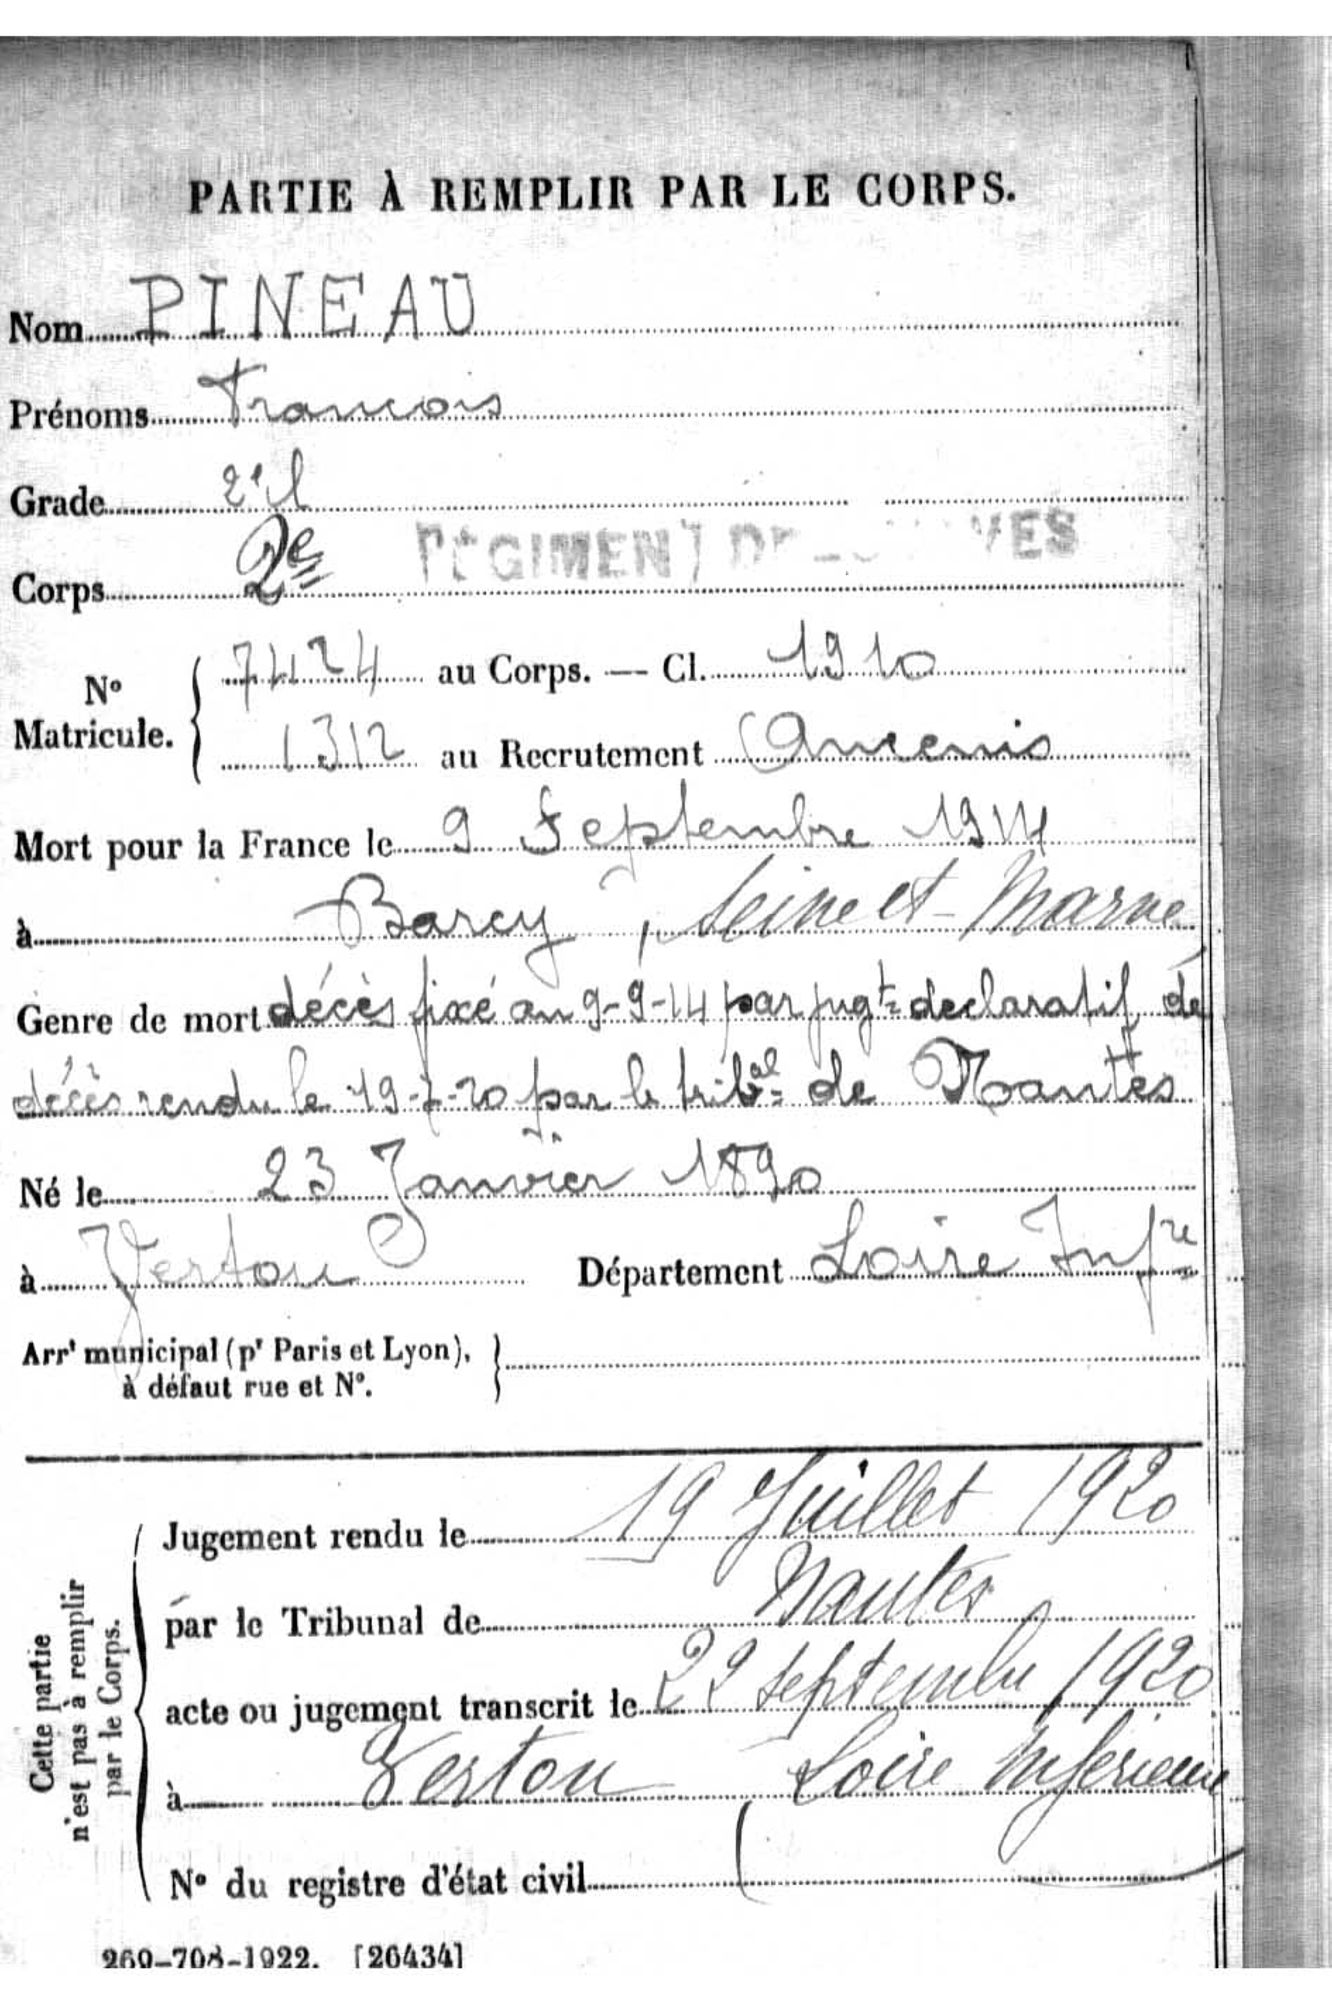 PARTIE À REMPLIR PAR LE CORPS.
Nom PINEAU
Prénoms Francois
Grade 2e cl
Corps 2e RÉGIMENT DE VES
No Matricule. 7424 au Corps. — Cl. 1910
1312 au Recrutement Ancenis
Mort pour la France le 9 Septembre 1914
à Barcy, Seine et Marne
Genre de mort décès fixé au 9-9-14 par jugt declaratif de
décès rendu le 19-7-20 par le tribal de Nantes
Né le 23 Janvier 1890
à Vertou Département Loire Infre
Arrt municipal (pr Paris et Lyon),
à défaut rue et No.
Cette partie
n'est pas à remplir
par le Corps.
Jugement rendu le 19 Juillet 1920
par le Tribunal de Nantes
acte ou jugement transcrit le 22 septembre 1920
à Vertou Loire Inférieure
No du registre d'état civil
269-708-1922. [26434]